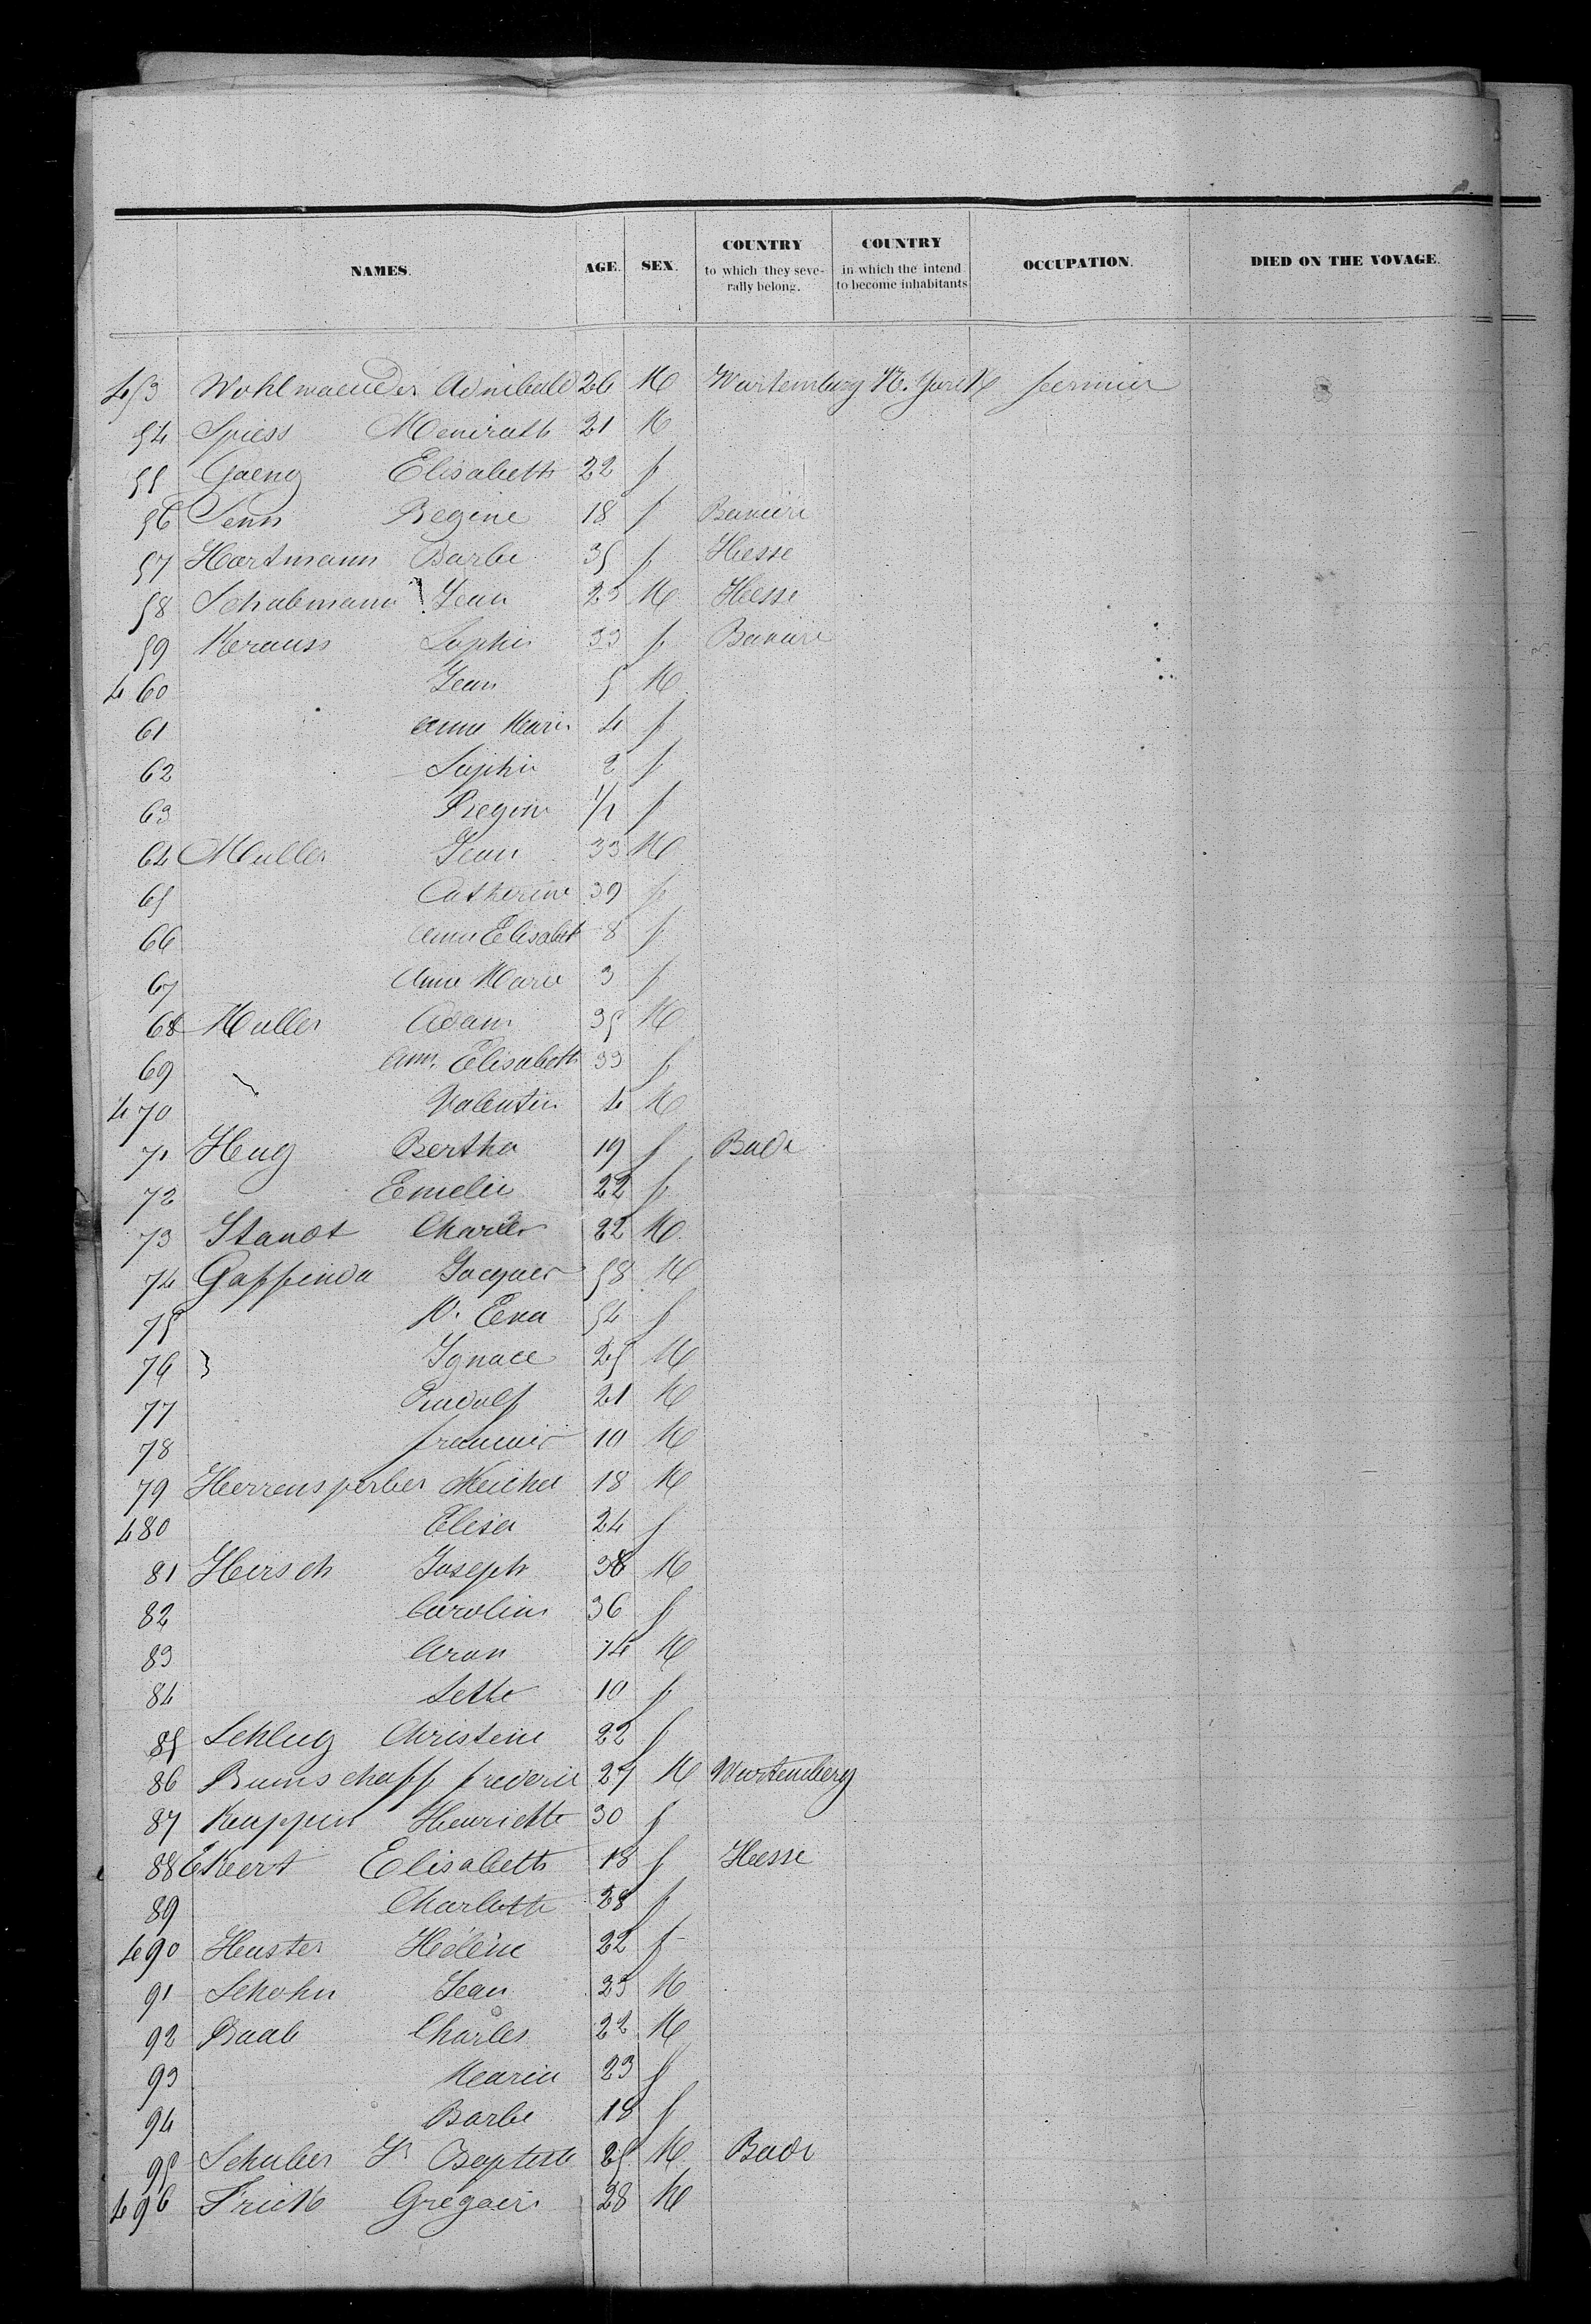 NAMES. AGE. SEX. COUNTRY to which they seve-rally belong. COUNTRY in which the intend to become inhabitants OCCUPATION. DIED ON THE VOYAGE.
453 26 M Wurtemburg N. York fermier
54 Spiess Meinrath 21 M
55 Gaeng Elisabeth 22 f
56 Senn Regine 18 f Baviere
57 Hartmann Barbe 35 f Hesse
58 Schabmann Jean 23 M Hesse
59 Krauss Sophie 33 f Baviere
460 Jean 5 M
61 Anna Marie 4 f
62 Sophie 2 f
63 Regine 1/2 f
64 Muller Jean 33 M
65 Catherine 39 f
66 Anna Elisabet 8 f
67 Anna Marie 3 f
68 Muller Adam 35 M
69 Ann. Elisabeth 33 f
470 Valentin 4 M
71 Hug Bertha 19 f Bade
72 Emelie 22 f
73 Standt Charles 22 M
74 Gaffinda Jacques 58 M
75 M. Eva 54 f
76 Ignace 25 M
77 Rudolf 21 M
78 10 M
79 Herrensperber Michel 18 M
480 Elisa 24 f
81 Hirsch Joseph 38 M
82 Caroline 36 f
83 Aron 14 M
84 Jette 10 f
85 Schlug Christine 22 f
86 Bumschaff frederic 27 M Wurtemberg
87 Knappen Henriette 30 f
88 Ekert Elisabeth 18 f Hesse
89 Charlotte 28 f
490 Huster Hélène 22 f
91 Schohn Jean 23 M
92 Baab Charles 22 M
93 Maria 23 f
94 Barbe 18 f
95 Schuber Jn Baptiste 25 M Bade
496 Frick Gregoire 28 M